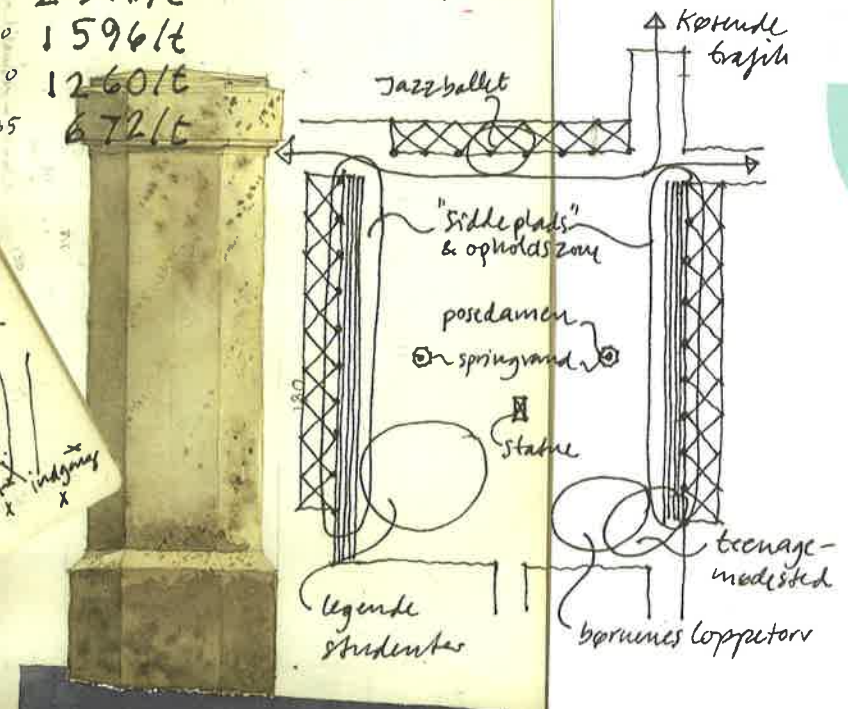 1596/t
1260/t
672/t
Kørende
trafik
Jazzballet
"Siddeplads"
& opholdszone
posedamen
springvand
statue
180
indgang
x
x
teenage-
mødested
legende
studenter
børnenes loppetorv